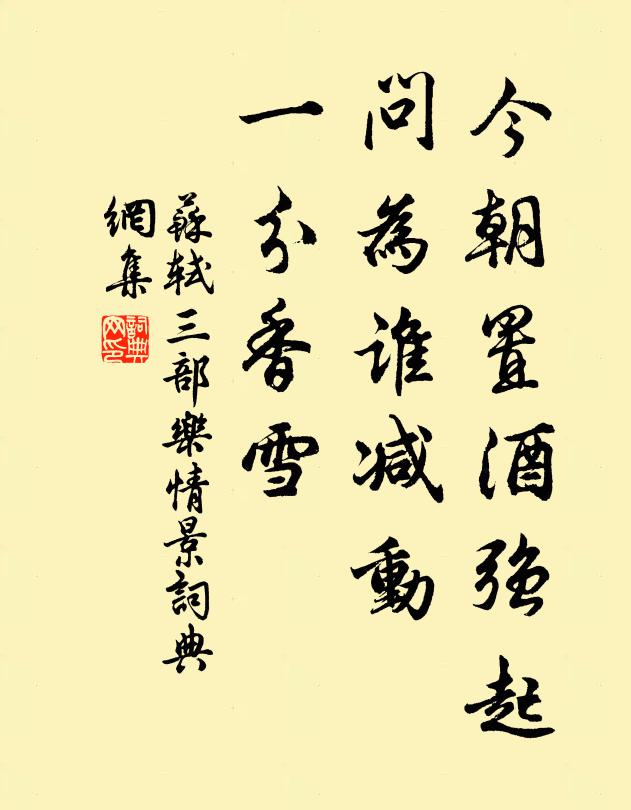 今朝置酒强起
問為誰減動
一分香雪
蘇軾三部樂情景詞典
網集
詞典
网印